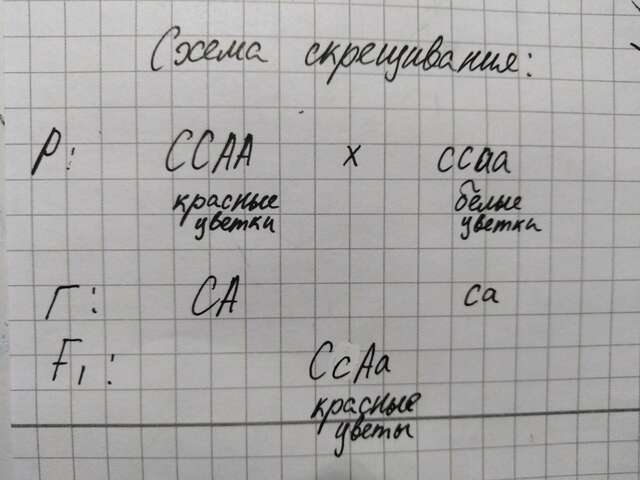 Схема скрещивания:
P: CCAA x ccaa
красные белые
цветки цветки
Г: CA ca
F1: CcAa
красные
цветы